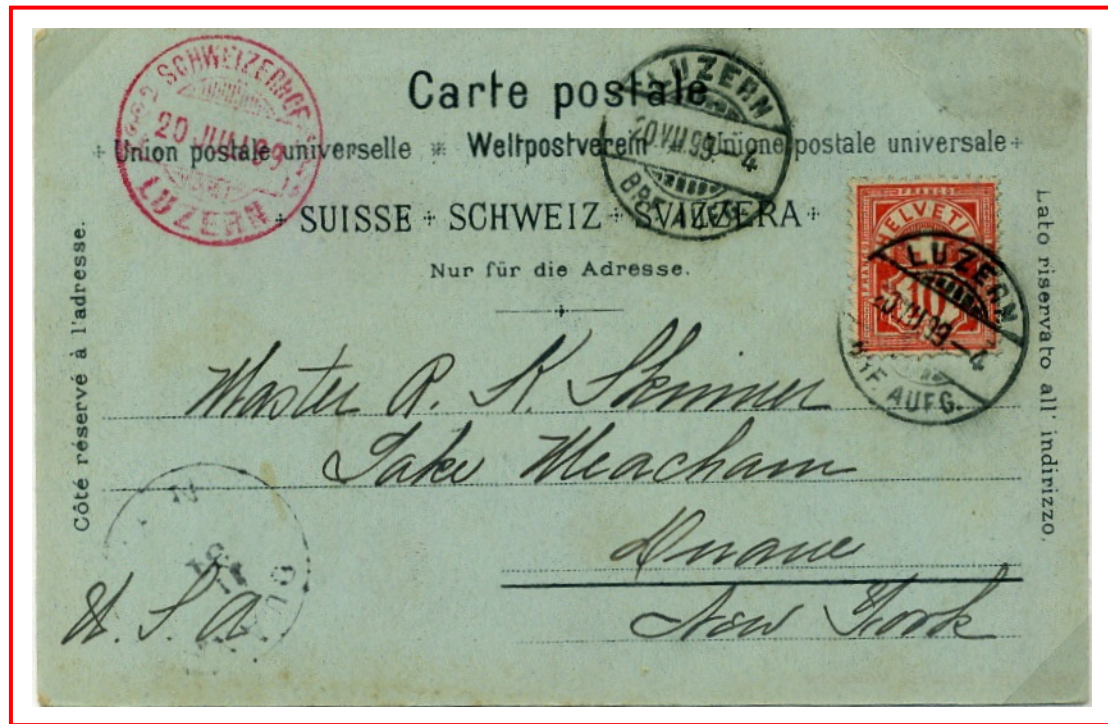 Carte postale
Union postale universelle * Weltpostverein * Unione postale universale
SUISSE + SCHWEIZ + SVIZZERA
Nur für die Adresse.
Côté réservé à l'adresse.
Lato riservato all' indirizzo.
SCHWEIZERHOF
20 JUL
LUZERN
LUZERN
20.VII.99.-4
LUZERN
20.VII.99-4
BRF. AUFG.
FRANCO
HELVETIA
10
Master R. K. Skinner
Lake Meacham
Duane
New York
U. S. A.